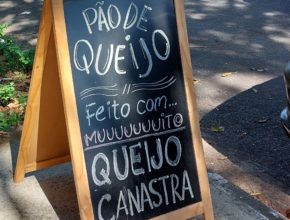 PÃO DE
QUEIJO
FEITO COM...
MUUUUUUITO
QUEIJO
CANASTRA